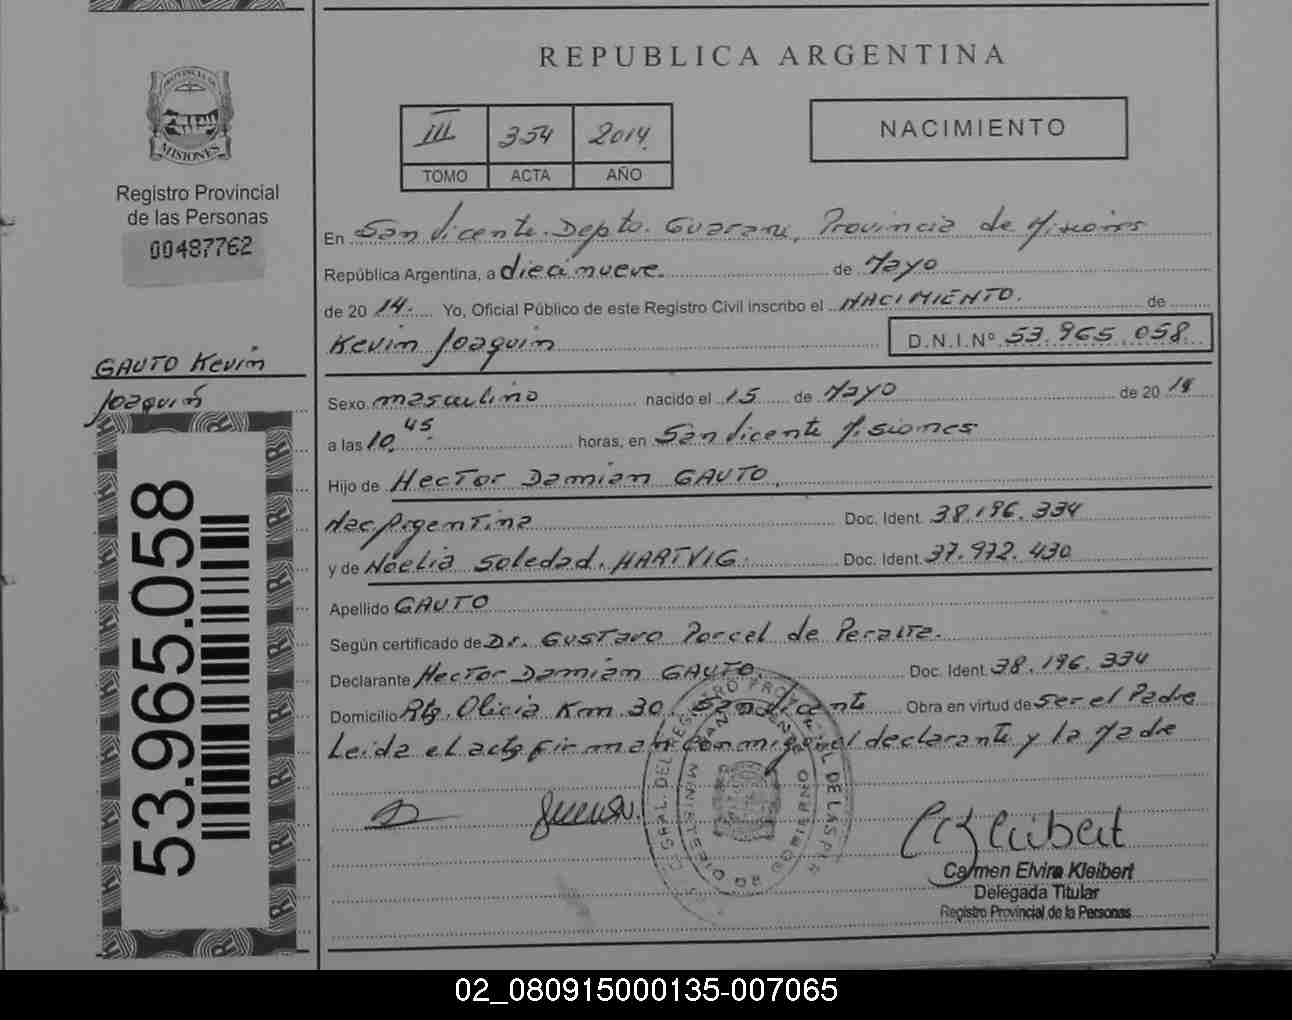 REPUBLICA ARGENTINA
PROVINCIA DE
MISIONES
Registro Provincial
de las Personas
00487762
III 354 2014
TOMO ACTA AÑO
NACIMIENTO
En San Vicente. Depto. Guarani, Provincia de Misiones
República Argentina, a diecinueve. de Mayo
de 2014. Yo, Oficial Público de este Registro Civil inscribo el NACIMIENTO. de
Kevin Joaquin D.N.I.Nº 53.965.058
GAUTO Kevin
Joaquin
Sexo masculino nacido el 15 de Mayo de 2014
a las 10.45 horas, en San Vicente Misiones
Hijo de Hector Damian GAUTO,
Nac. Argentina Doc. Ident. 38.196.334
y de Noelia Soledad. HARTVIG. Doc. Ident. 37.972.430
Apellido GAUTO
Según certificado de Dr. Gustavo Porcel de Peralta.
Declarante Hector Damian GAUTO. Doc. Ident. 38.196.334
Domicilio Km 30, San Vicente Obra en virtud de ser el Padre
Leida el acta firman conmigo el declarante y la Madre
53.965.058
Carmen Elvira Kleibert
Delegada Titular
Registro Provincial de la Personas
02_080915000135-007065